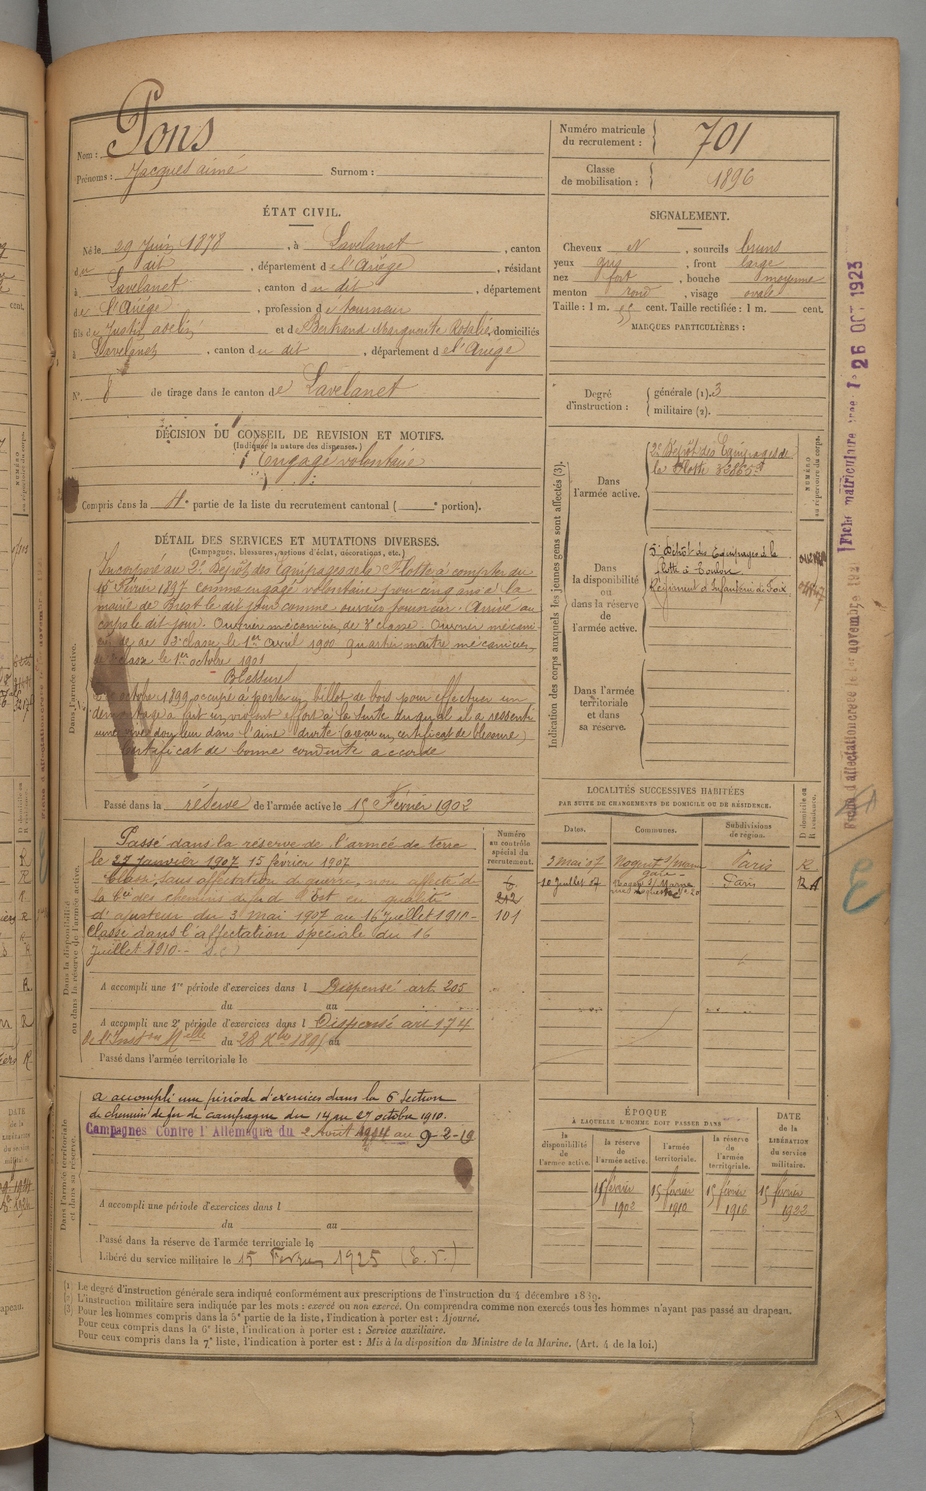 Nom : Pons
Prénoms : Jacques aimé Surnom :
Numéro matricule
du recrutement : 701
Classe
de mobilisation : 1896
ÉTAT CIVIL.
Né le 29 Juin 1878, à Lavelanet, canton
du dit, département de l'Ariège, résidant
à Lavelanet, canton du dit, département
de l'Ariège, profession de tourneur
fils de Justin et de Bertrand Marguerite Rosalie, domiciliés
à Lavelanet, canton du dit, département de l'Ariège
N° 8 de tirage dans le canton de Lavelanet
SIGNALEMENT.
Cheveux N, sourcils bruns
yeux gris, front large
nez fort, bouche moyenne
menton rond, visage ovale
Taille : 1 m. cent. Taille rectifiée : 1 m. cent.
MARQUES PARTICULIÈRES :
Degré
d'instruction :
générale (1). 3
militaire (2).
DÉCISION DU CONSEIL DE REVISION ET MOTIFS.
(Indiquer la nature des dispenses.)
Engagé volontaire
Compris dans la 4e partie de la liste du recrutement cantonal ( e portion).
DÉTAIL DES SERVICES ET MUTATIONS DIVERSES.
(Campagnes, blessures, actions d'éclat, décorations, etc.)
Dans l'armée active.
Incorporé au 2e Dépôt des Equipages de la Flotte à compter du
15 Février 1897 comme engagé volontaire pour cinq ans à la
mairie de Brest le dit jour comme ouvrier Arrivé au
corps le dit jour. Ouvrier mécanicien de 3e classe. Ouvrier mécani-
de 2e classe le 1er avril 1900 quartier maître mécanicien
classe le 1er octobre 1901
Blessures
octobre 1899 occupé à porter un billot de bois pour effectuer un
démontage a fait un violent effort à la suite duquel il a ressenti
une vive douleur dans l'aine droite (certificat de blessure)
Certificat de bonne conduite accordé
Passé dans la réserve de l'armée active le 15 Février 1902
Indication des corps auxquels les jeunes gens sont affectés (3).
NUMÉRO
au répertoire du corps.
Dans
l'armée active.
2e Dépôt des Equipages de
la Flotte
Dans
la disponibilité
ou
dans la réserve
de
l'armée active.
5e Dépôt des Equipages de la
flotte à Toulon
Régiment d'Infanterie de Foix
Dans l'armée
territoriale
et dans
sa réserve.
LOCALITÉS SUCCESSIVES HABITÉES
PAR SUITE DE CHANGEMENTS DE DOMICILE OU DE RÉSIDENCE.
Dates. Communes. Subdivisions
de région. D domicile ou
R résidence.
3 mai 07 Nogent s/ Marne Paris R
10 Juillet 07 Nogent s/ Marne Paris
Dans la disponibilité
ou dans la réserve de l'armée active.
Numéro
au contrôle
spécial du
recrutement.
Passé dans la réserve de l'armée de terre
le 27 janvier 1907 15 février 1907
Classé sans affectation de guerre, non affecté
la Cie des chemins de fer de l'Est en qualité
d'ajusteur du 3 mai 1907 au 16 juillet 1910
242
101
Classé dans l'affectation spéciale du 16
juillet 1910
A accompli une 1re période d'exercices dans l Dispensé art. 205
du au
A accompli une 2e période d'exercices dans l Dispensé art 174
de l'Inston Mlle du 28 Xbre 1895 au
Passé dans l'armée territoriale le
Dans l'armée territoriale
et dans sa réserve.
a accompli une période d'exercices dans la 6e section
de chemin de fer de campagne du 14 au 27 octobre 1910.
Campagnes Contre l'Allemagne du 2 Août 1914 au 9-2-19
A accompli une période d'exercices dans l
du au
Passé dans la réserve de l'armée territoriale le
Libéré du service militaire le 15 Février 1925
ÉPOQUE
À LAQUELLE L'HOMME DOIT PASSER DANS
la
disponibilité
de
l'armée active. la réserve
de
l'armée active. l'armée
territoriale. la réserve
de
l'armée
territoriale. DATE
de la
LIBÉRATION
du service
militaire.
15 février
1902 15 février
1910 15 février
1916 15 février
1922
(1) Le degré d'instruction générale sera indiqué conformément aux prescriptions de l'instruction du 4 décembre 1889.
(2) L'instruction militaire sera indiquée par les mots : exercé ou non exercé. On comprendra comme non exercés tous les hommes n'ayant pas passé au drapeau.
(3) Pour les hommes compris dans la 5e partie de la liste, l'indication à porter est : Ajourné.
Pour ceux compris dans la 6e liste, l'indication à porter est : Service auxiliaire.
Pour ceux compris dans la 7e liste, l'indication à porter est : Mis à la disposition du Ministre de la Marine. (Art. 4 de la loi.)
Fiche matriculaire 26 OCT 1923
Fiche d'affectation créée le 1er novembre